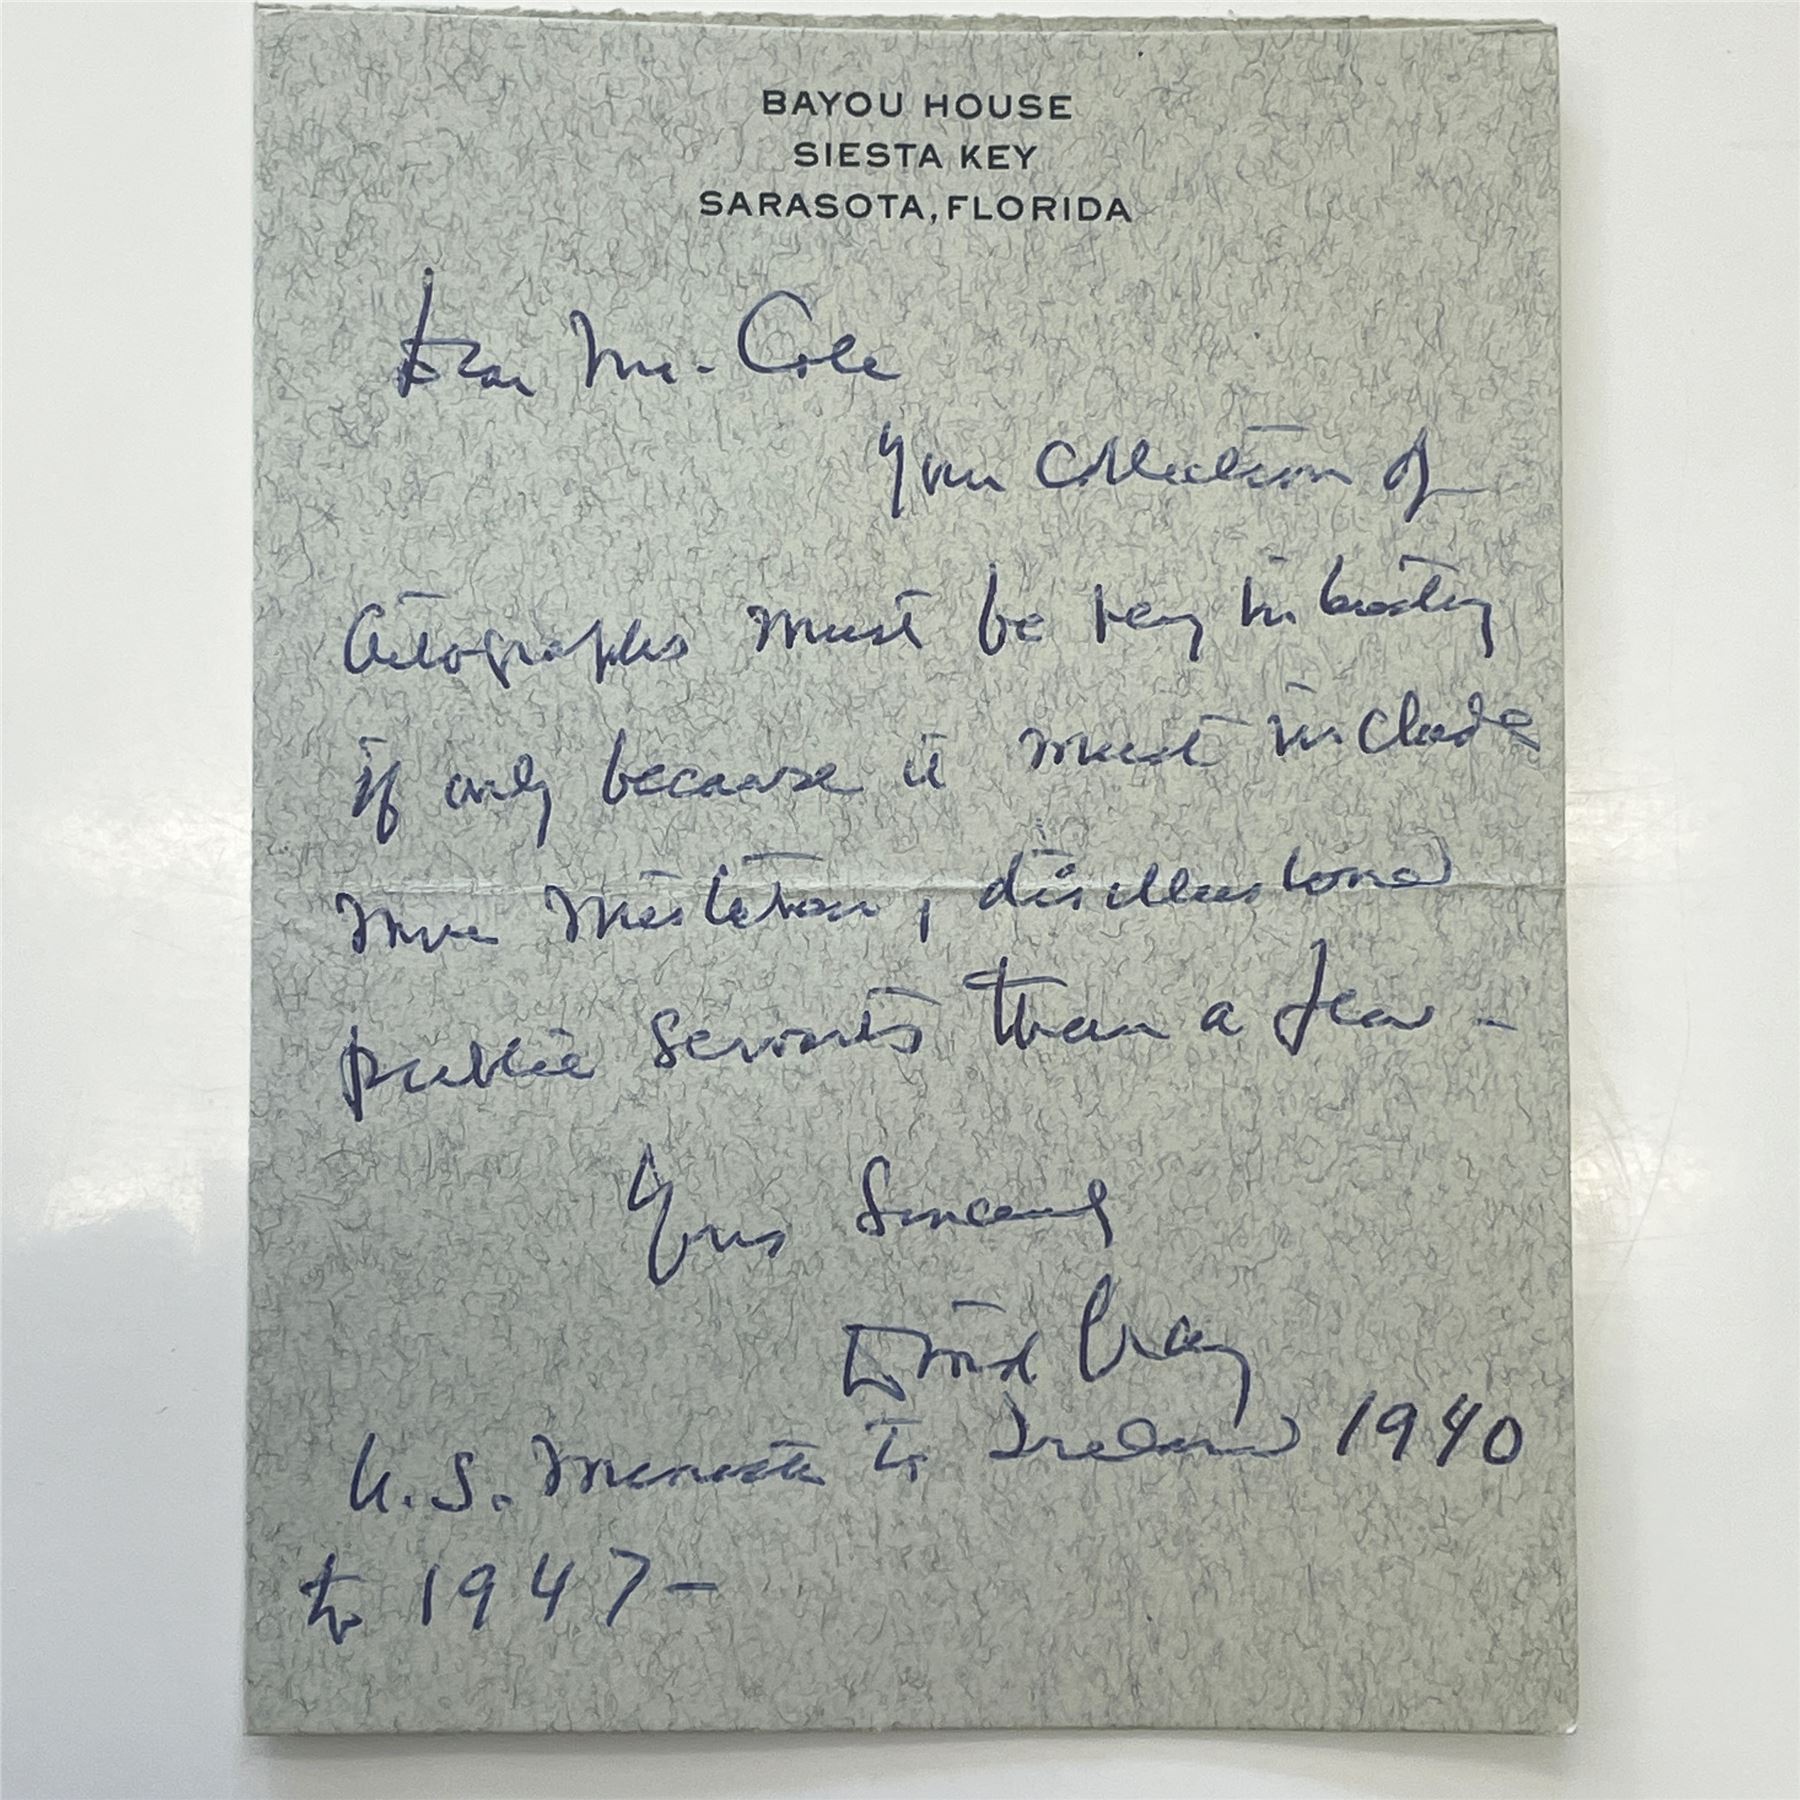 BAYOU HOUSE
SIESTA KEY
SARASOTA, FLORIDA
Dear Mr. Cole
Your Collection of
Autographs must be very
if only because it must include
more , disillusioned
public servants than a few -
Yours Sincerely
David Gray
U.S. Minister to Ireland 1940
to 1947-